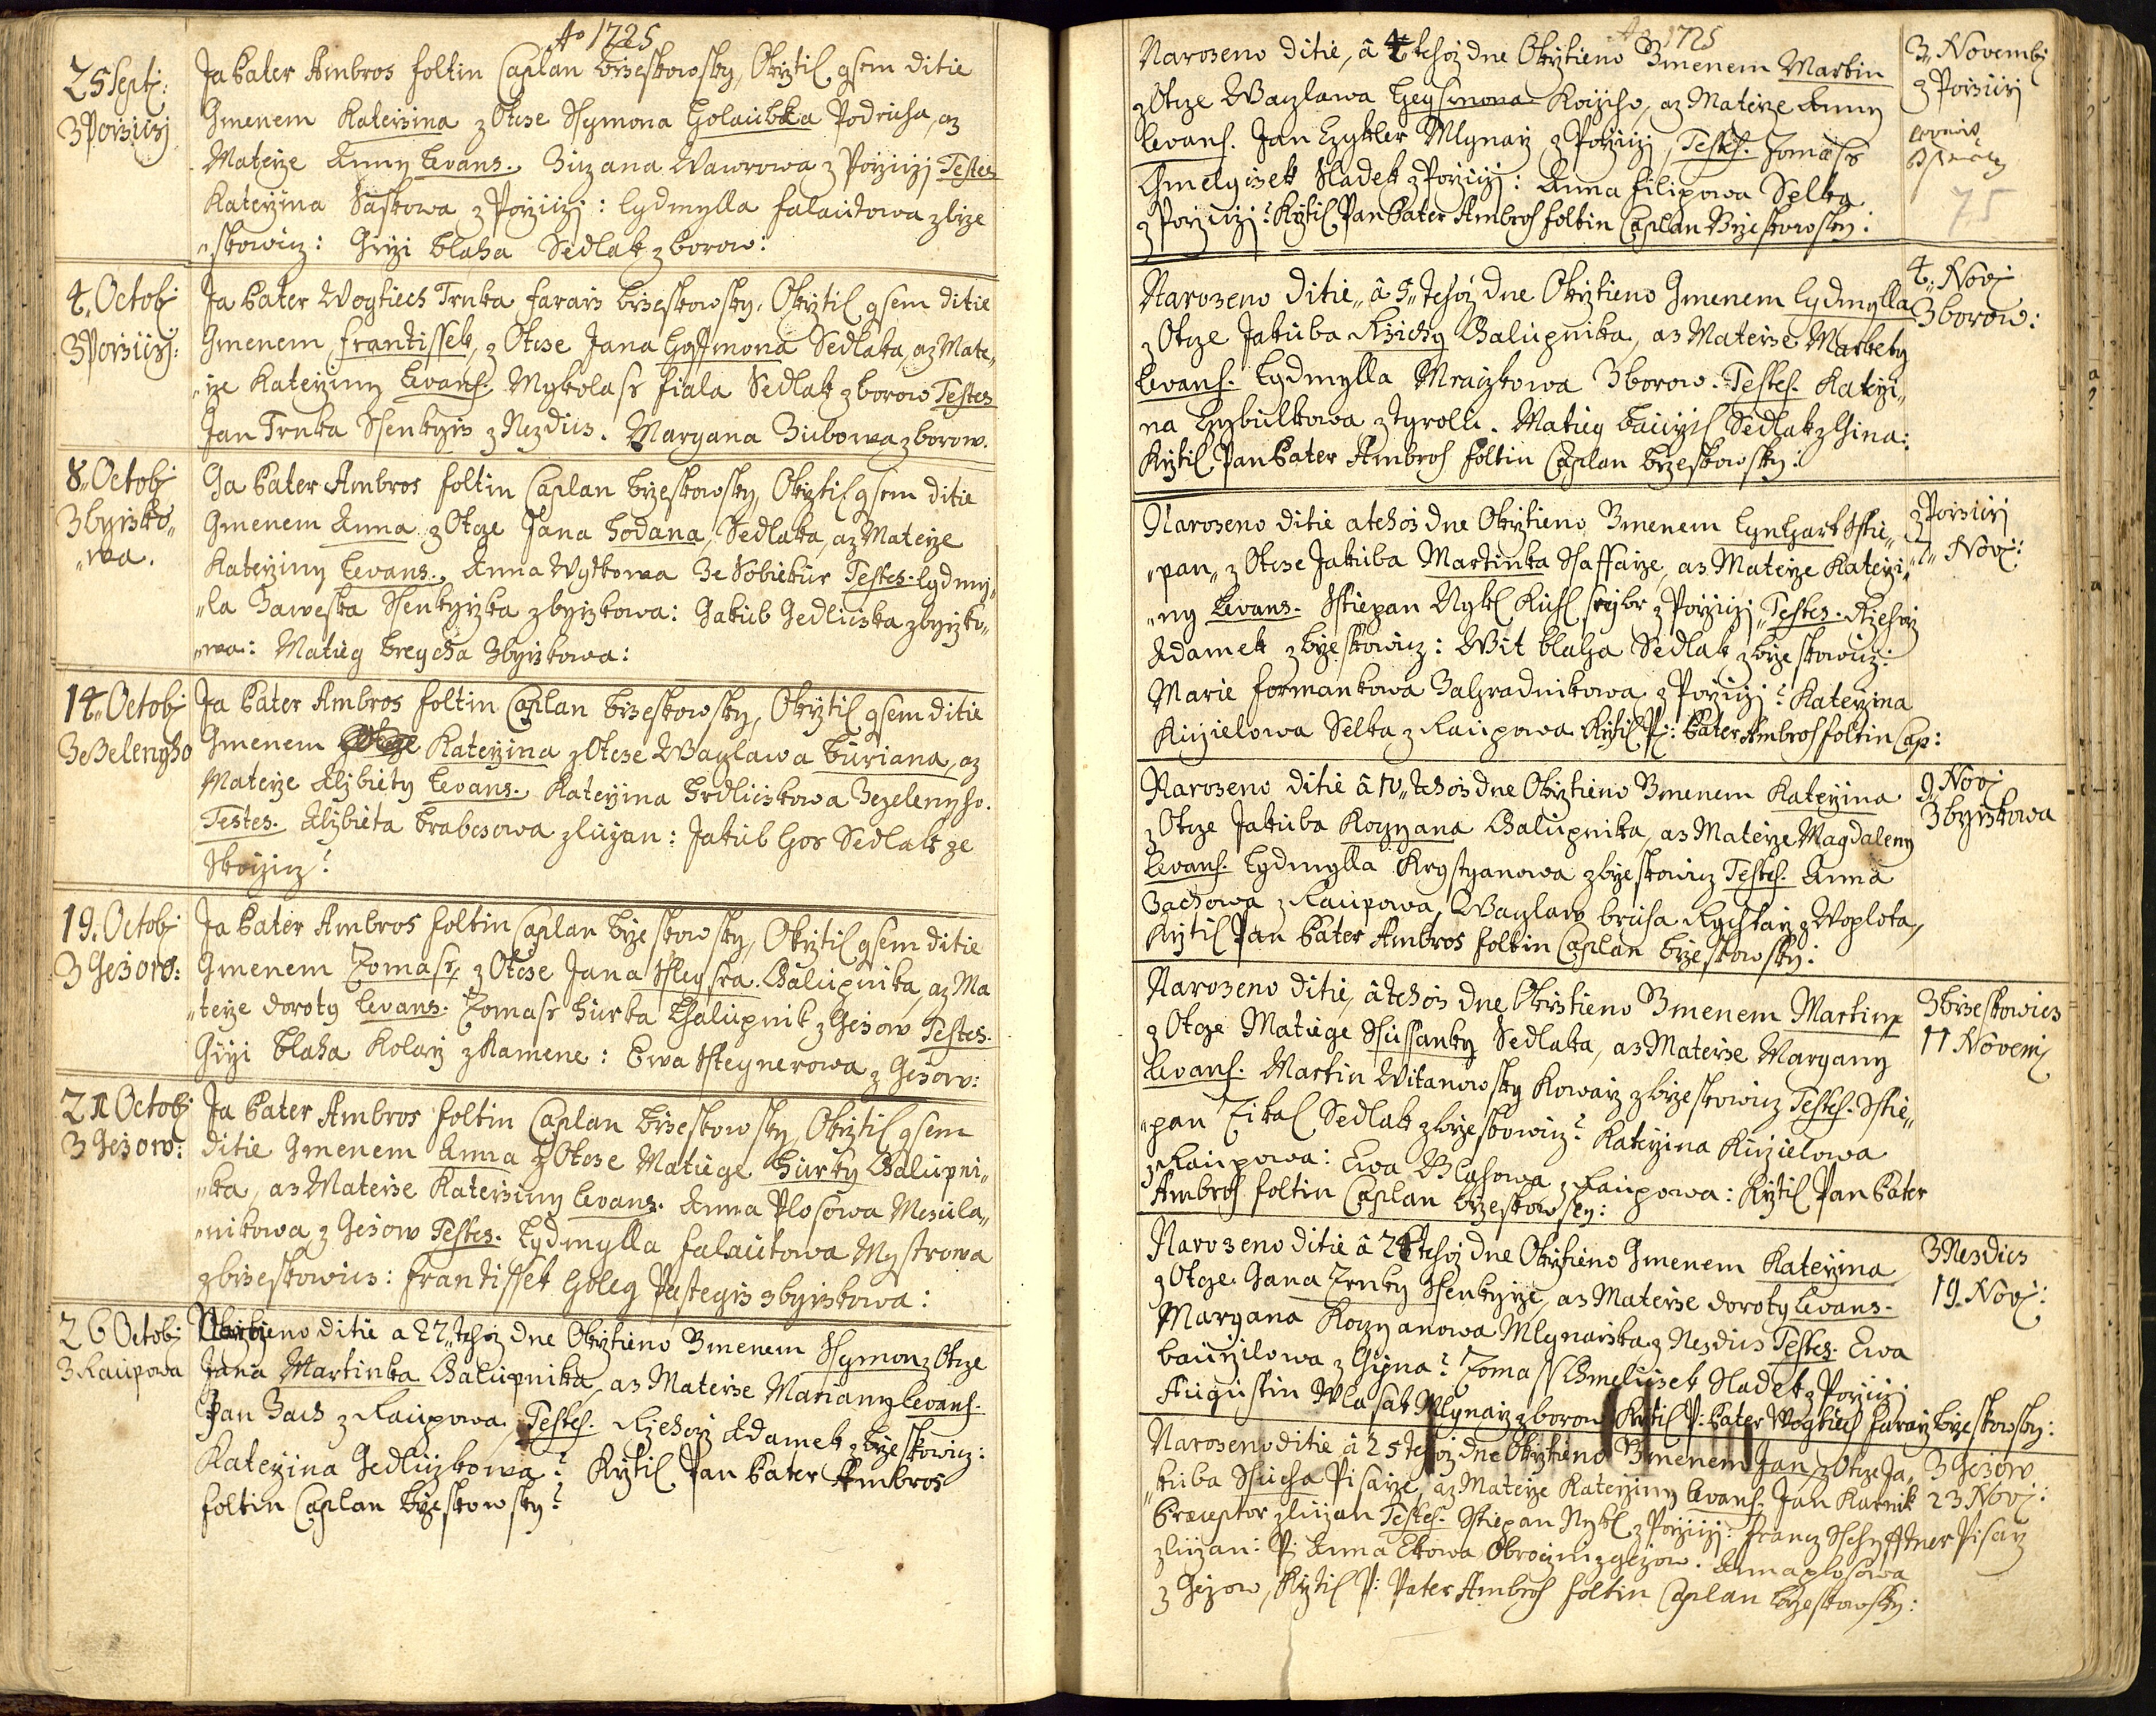 Ao 1725
25 Septj:
z Porziczj
Ja Pater Ambros Foltin Caplan Brzeskowsky, Okrztil gsem ditie
Gmenem Katerzina z Otcze Ssymona Holaubka Podruha, az
Materze Anny Levans. Zuzana Wawrowa z Porziczj Testes
Katerzina Saskowa z Porziczj: Lydmylla Falautowa z brze
„skowicz: Girzi Blaha Sedlak z borow:
4. Octobj
z Porziczj:
Ja Pater Wogtiech Trnka Fararz brzeskowsky, Okrztil gsem ditie
Gmenem Frantissek, z Otcze Jana Hoffmona Sedlaka, az Mate„
„rze Katerziny Levans. Mykolass Fiala Sedlak z borow Testes
Jan Trnka Ssenkyrz z Nezdicz. Maryana Zubowa z borow.
8. Octobj
z byrzko„
„wa.
Ja Pater Ambros Foltin Caplan Brzeskowsky, Okrztil gsem ditie
Gmenem Anna z Otcze Jana Hodana, Sedlaka, az Materze
Katerziny Levans., Anna Wytkowa Ze Sobiekur Testes. Lydmy„
„la Zaweska Ssenkyrzka z byrzkowa: Jakub Jedliczka z byrzko„
„wa: Matieg Bregcha z byrzkowa:
14. Octobj
Ze Zelenyho
Ja Pater Ambros Foltin Caplan Brzeskowsky, Okrztil gsem ditie
Gmenem Katerzina z Otcze Waczlawa Buriana, az
Materze Alzbiety Levans. Katerzina Hrdliczkowa Ze Zelenyho.
Testes. Alzbieta Brabcowa z Luzan: Jakub Hos Sedlak ze
Skoczicz:
19. Octobj
z Gezow:
Ja Pater Ambros Foltin Caplan Brzeskowsky, Okrztil gsem ditie
Gmenem Tomass, z Otcze Jana Sslegsra Chalupnika, az Ma
„terze Doroty Levans. Tomass Hurka Chalupnik z Gezow Testes.
Girzi Blaha Kolarz z Kamene: Ewa Stegnerowa z Gezow:
21 Octobj
z Gezow:
Ja Pater Ambros Foltin Caplan Brzeskowsky, Okrztil gsem
ditie Gmenem Anna z Otcze Matiege Hurky Chalupni„
„ka, az Materze Katerziny Levans. Anna Plosowa Mezula„
„nikowa z Gezow Testes. Lydmylla Falautowa Mystrowa
z brzeskowicz: Frantissek Holeg Pastegrz z byrzkowa:
26 Octobj
z Raupowa
Narozieno ditie a 27„ tehoz dne Okrztieno Zmenem Ssymon z Otcze
Jana Martinka Chalupnika, az Materze Mariany Levans.
Jan Zach z Raupowa. Testes. Rzehorz Adamek z brzeskowicz:
Katerzina Jedliczkowa: Krztil Pan Pater Ambros
Foltin Caplan Brzeskowsky:
Ao 1725
Narozeno ditie, á 4 tehoz dne Okrztieno Zmenem Martin
z Otcze Waczlawa Hegsmona Kogiho, az Materze Anny
Levans. Jan Czykler Mlynarz z Porziczj, Testes. Tomass
Chmelgizek Sladek z Porziczj: Anna Filipowa Selka
z Porziczj: Krztil Pan Pater Ambros Foltin Caplan Brzeskowsky:
3„ Novembj
z Porziczj
75
Narozeno ditie„ á 5„ tehoz dne Okrztieno Gmenem Lydmylla
z Otcze Jakuba Rzichy Chalupnika, az Materze Markety
Levans. Lydmylla Mraczkowa Z borow. Testes. Katerzi„
na Czybulkowa z Tyrolli. Matieg Baurzil Sedlak z Gina:
Krztil Pan Pater Ambros Foltin Caplan Brzeskowsky:
4„ Novj
Z borow:
Narozeno ditie a tehoz dne Okrztieno Zmenem Lynhart Sstie„
„pan„ z Otcze Jakuba Martinka Ssaffarze, az Materze Katerzi„
„ny Levans. Sstiepan Nykl z Porziczj, Testes. Rzehorz
Adamek z brzeskowicz: Wit Blaha Sedlak z brzeskowicz:
Marie Formankowa Zahradnikowa z Porziczj: Katerzina
Kuzielowa Selka z Raupowa Krztil P: Pater Ambros Foltin Cap:
z Porziczj
7„ Novj:
Narozeno ditie á 10„ tehoz dne Okrztieno Zmenem Katerzina
z Otcze Jakuba Koczyana Chalupnika, az Materze Magdaleny
Levans. Lydmylla Krystyanowa z brzeskowicz Testes. Anna
Zachowa z Raupowa, Waczlaw Brusa Rychtarz z Woplota,
Krztil Pan Pater Ambros Foltin Caplan Brzeskowsky:
9„ Novj
Z byrzkowa
Narozeno ditie, á tehoz dne Okrztieno Zmenem Martin
z Otcze Matiege Ssussanky Sedlaka, az Materze Maryany
Levans. Martin Witanowsky Kowarz z brzeskowicz Testes. Sstie„
„pan Cikal Sedlak z brzeskowicz: Katerzina Kuzielowa
z Raupowa: Ewa Blahowa z Raupowa: Krztil Pan Pater
Ambros Foltin Caplan Brzeskowsky:
Z brzeskowicz
11 Novemj
Narozeno ditie á 24 tehoz dne Okrztieno Gmenem Katerzina
z Otcze Jana Trnky Ssenkyrze, az Materze Doroty Levans.
Maryana Koczyanowa Mlynarzka z Nezdicz Testes. Ewa
Baurzilowa z Gyna: Tomass Chmelirzek Sladek z Porziczj
Augustin Wlasak Mlynarz z borow Krztil P: Pater Wogtiech Fararz Brzeskowsky:
Z Nezdicz
19. Novj:
Narozeno ditie á 25 tehoz dne Okrztieno Zmenem Jan z Otcze Ja„
„kuba Ssucha Pisarze, az Materze Katerziny Levans. Jan Karnik
Præceptor z Luzan Testes. Sstiepan Nykl z Porziczj: Francz Ssehyfftner Pisarz
z Luzan: P: Anna Ekowa Obrocznj z Gezow. Anna Plosowa
z Gezow, Krztil P: Pater Ambros Foltin Caplan Brzeskowsky:
Z Gezow
23 Novj: